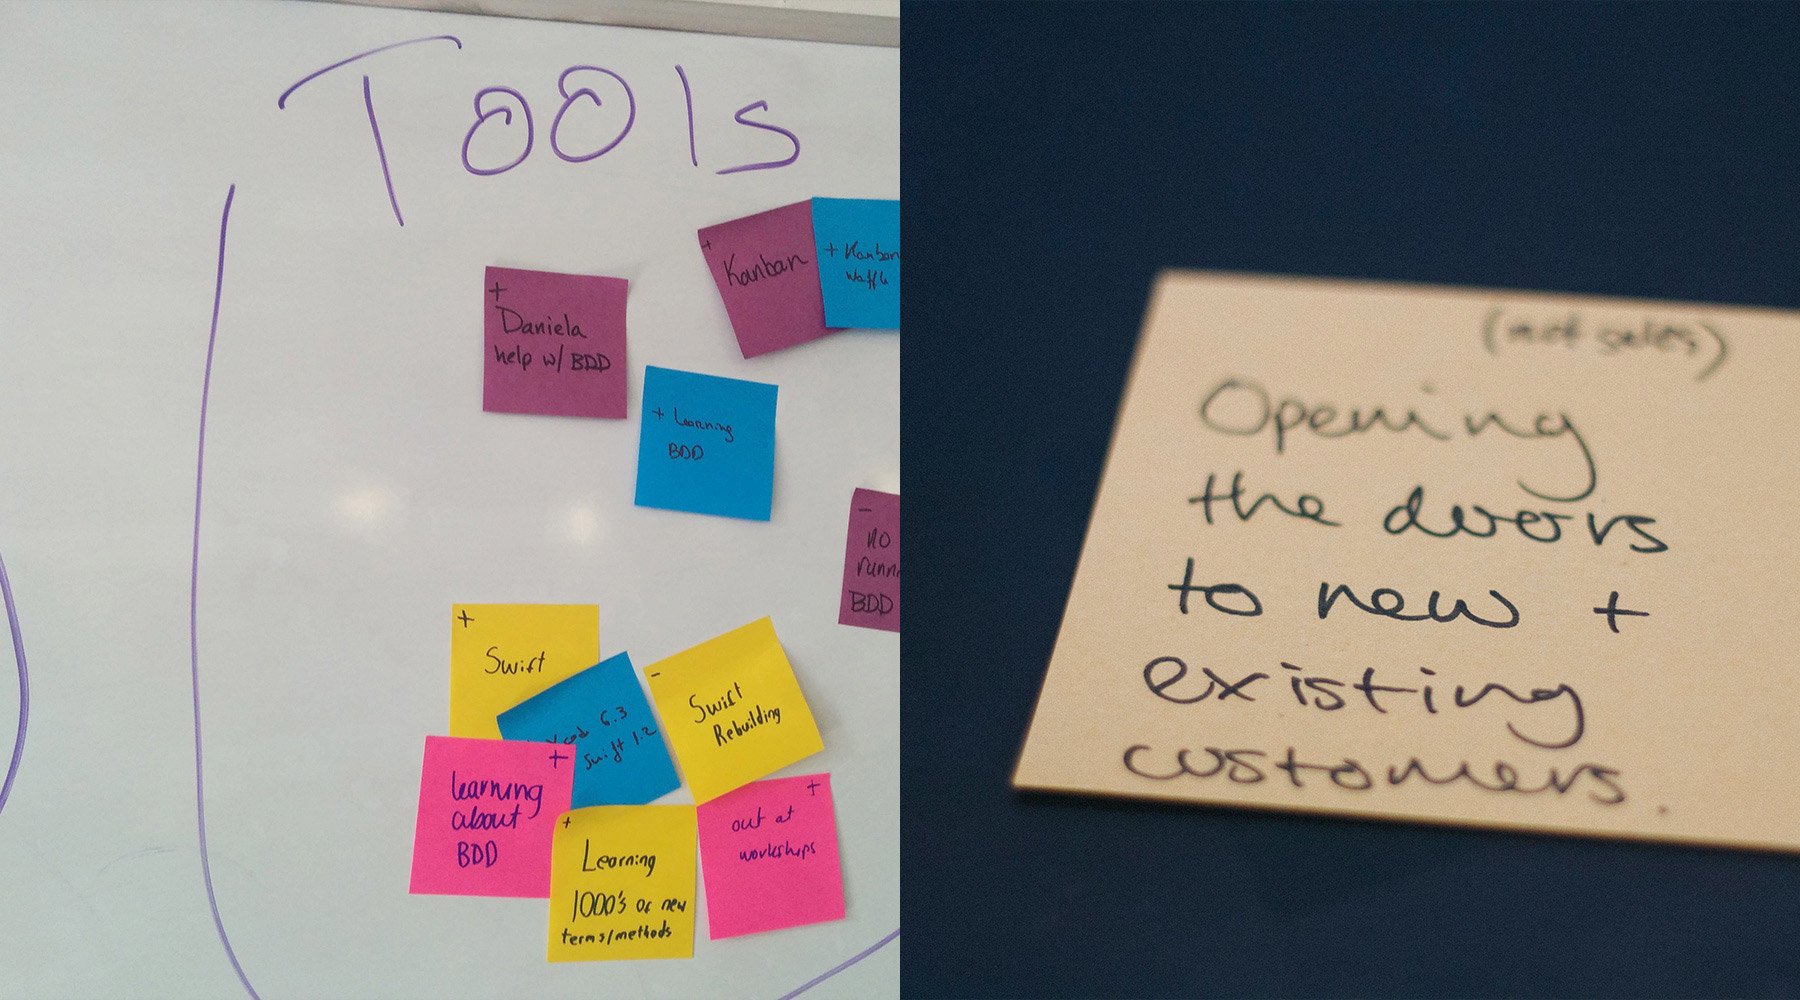 Tools
+
Kanban
+ Kanban
Waffle
+
Daniela
help w/ BDD
+ Learning
BDD
-
no
runn
BDD
+
Swift
Xcod 6.3
Swift 1.2
-
Swift
Rebuilding
+
learning
about
BDD
+
Learning
1000's of new
terms/methods
+
out at
workshops
(not sales)
Opening
the doors
to new +
existing
customers.